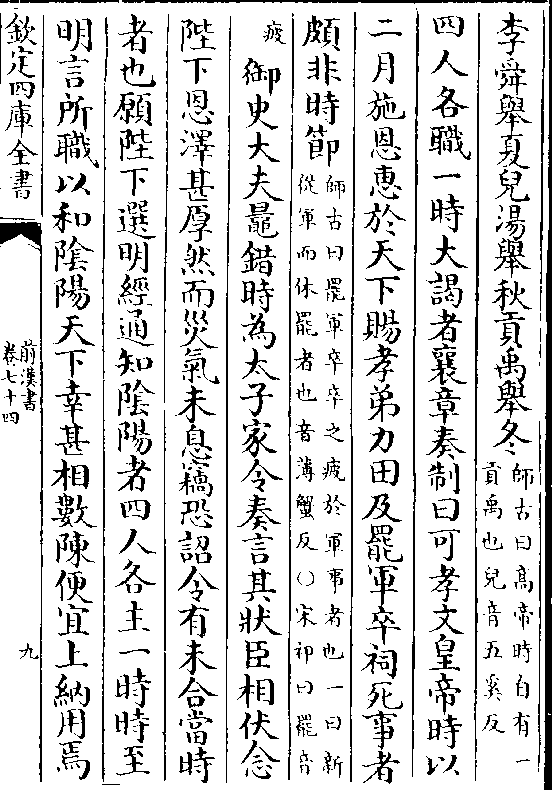 李舜舉夏兒湯舉秋貢禹舉冬師古曰髙帝時自有一貢禹也兒音五奚反
四人各職一時大謁者襄章奏制曰可孝文皇帝時以
二月施恩惠於天下賜孝弟力田及罷軍卒祠死事者
頗非時節師古曰罷軍卒卒之疲於軍事者也一曰新從軍而休罷者也音薄蟹反○宋祁曰罷音
疲御史大夫鼂錯時為太子家令奏言其狀臣相伏念
陛下恩澤甚厚然而災氣未息竊恐詔令有未合當時
者也願陛下選明經通知隂陽者四人各主一時時至
明言所職以和隂陽天下幸甚相數陳便宜上納用焉
欽定四庫全書
前漢書
卷七十四
九